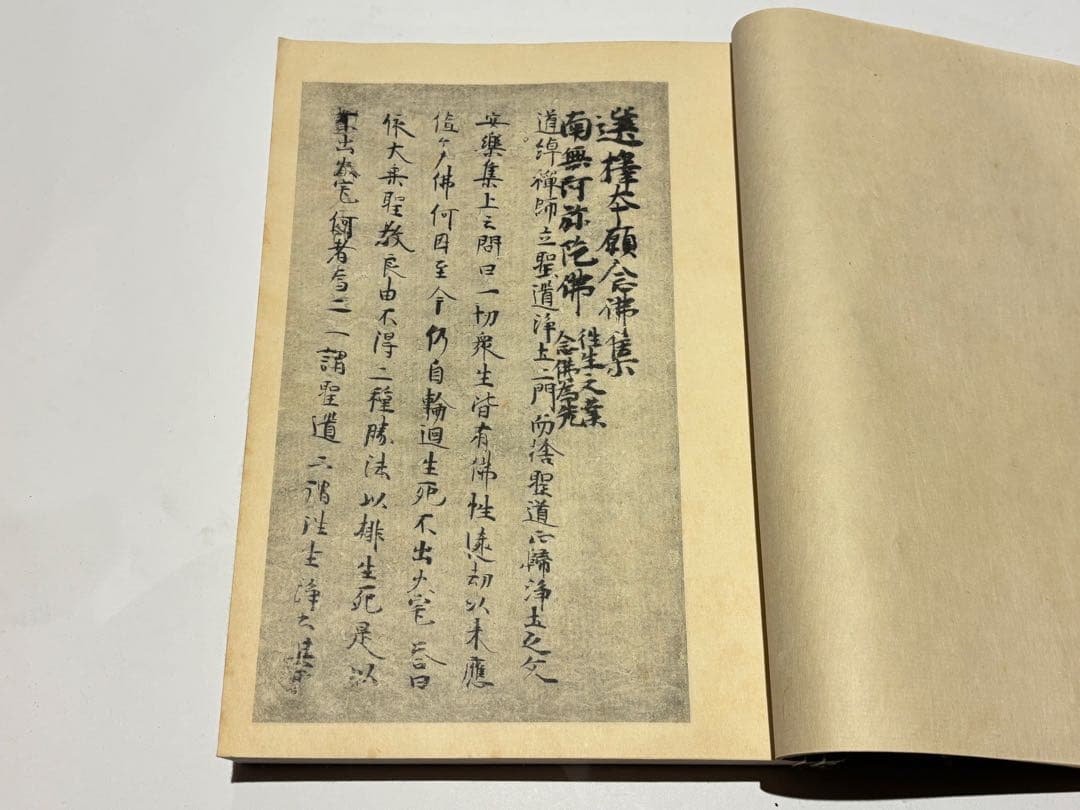 選擇本願念佛集
南無阿弥陀佛 往生之業
念佛為先
道綽禪師立聖道浄土二門而捨聖道正歸浄土之文
安樂集上云問曰一切衆生皆有佛性遠劫以来應
值多佛何因至今仍自輪迴生死不出火宅答曰
依大乗聖教良由不得二種勝法以排生死是以
不出火宅何者為二一謂聖道二謂往生浄土其